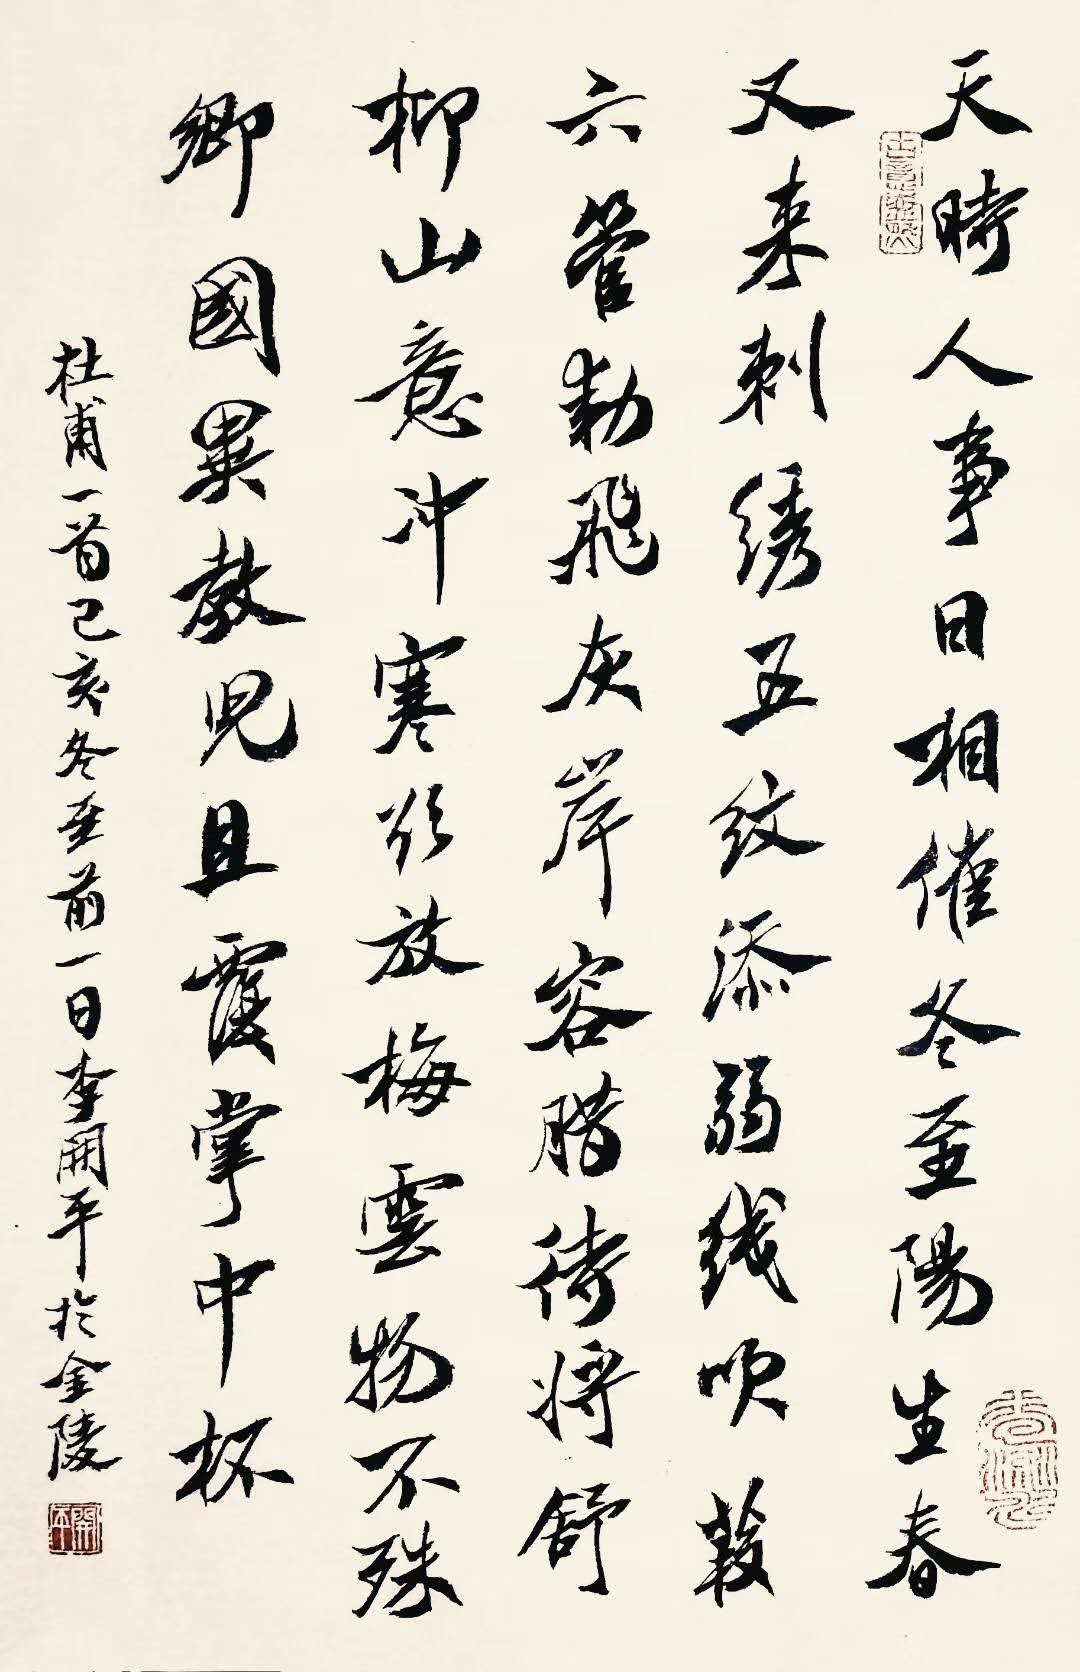 天時人事日相催冬至陽生春
又来刺绣五纹添弱线吹葭
六管動飛灰岸容腊待将舒
柳山意冲寒欲放梅雲物不殊
鄉國異教兒且覆掌中杯
杜甫一首己亥冬至前一日李開平於金陵
開平